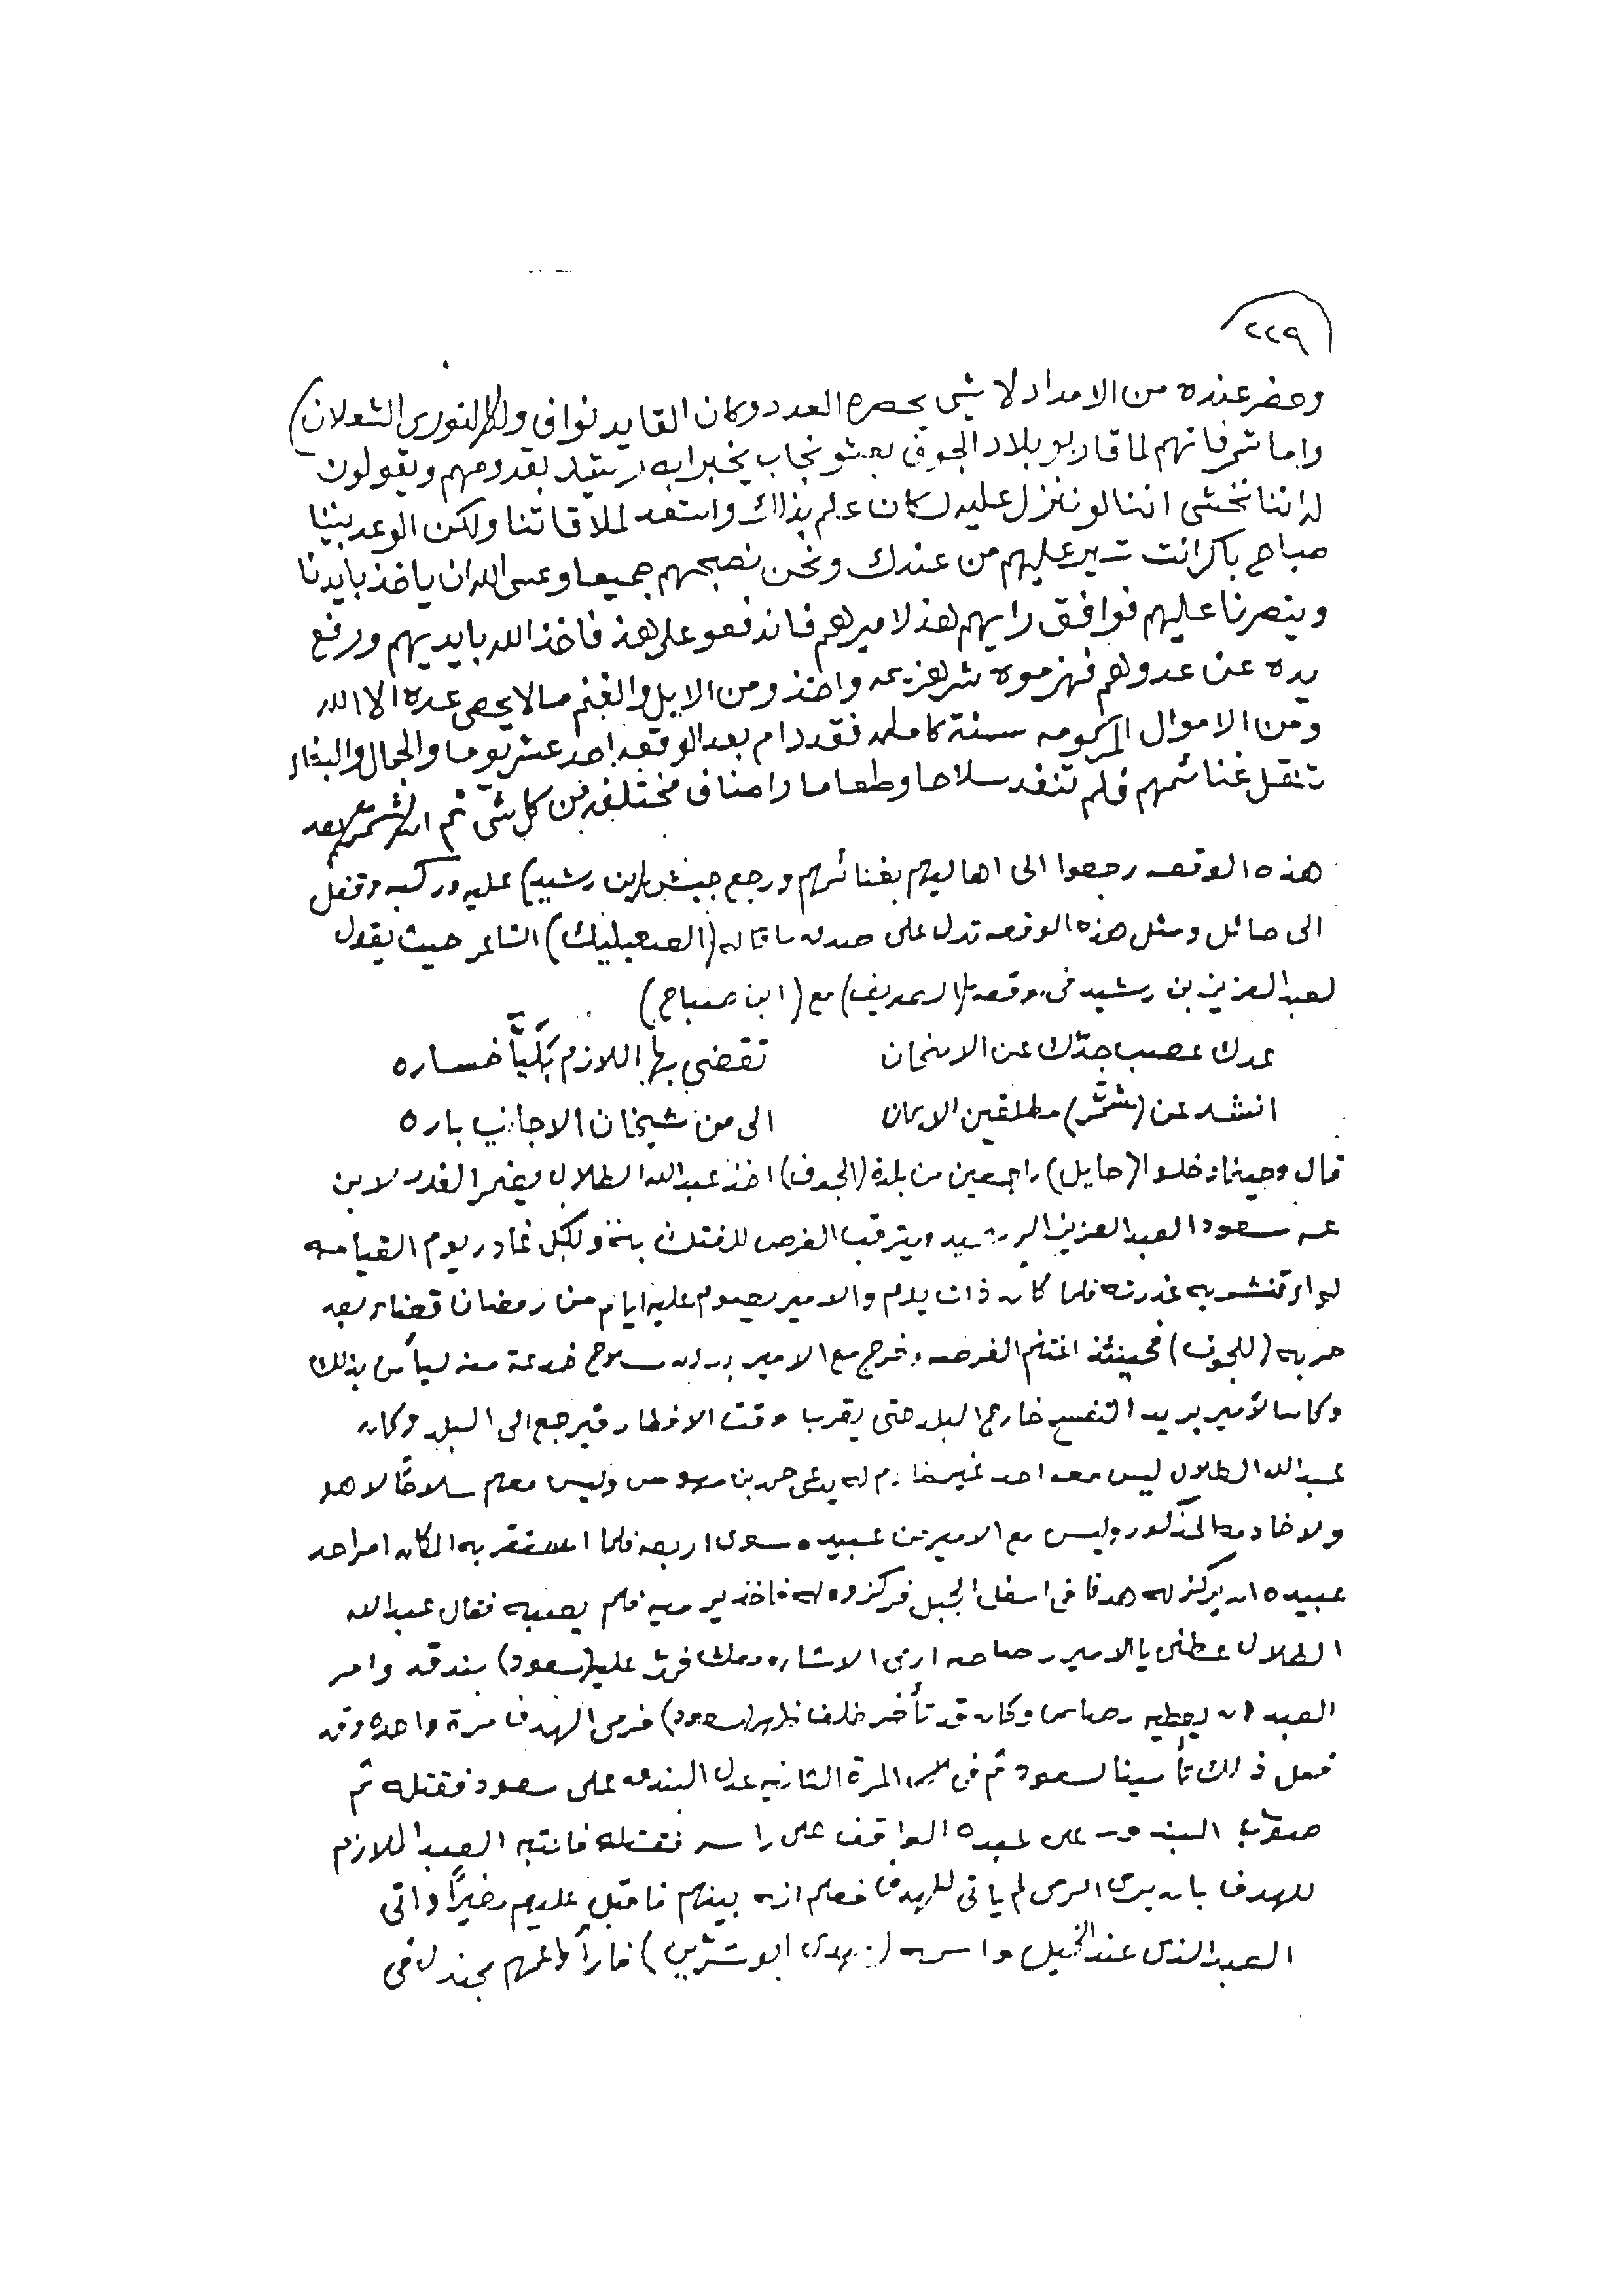 ٢٢٩
وحضر عنده من الامداد لا شي يحصره العدد وكان القايد نواف ولد النوري الشعلان)
واما شمر فانهم لما قاربو بلاد الجوف بعثو نجاب يخبر ابن رشيد بقدومهم ويقولون
له اننا نخشى اننا لو ننزل عليه لكان علم بذلك واستعد لملاقاتنا ولكن الوعد بيننا
صباح باكر انت تسير عليهم من عندك ونحن نصبحهم جميعا وعسى الله ان ياخذ بايدنا
وينصرنا عليهم فوافق رايهم هذا لاميرهم فاندفعو على هذ فاخذ الله بايديهم ورفع
يده عن عدوهم فهزموه شر هزيمه واخذو من الابل والغنم ما لا يحصى عده الا الله
ومن الاموال المركومه سنة كامله فقد دام بعد الوقعه احد عشر يوما والجمال والبغال
تنقل غنائمهم فلم تنفد سلاحا وطعاما واصناف مختلفه من كل شي ثم ان شمر بعد
هذه الوقعه رجعوا الى اهاليهم بغنائهم ورجع جيش (ابن رشيد) عليه وركبه وقفل
الى حائل ومثل هذه الوقعه تدل على صدق ما قاله (العصيليك) الشاعر حيث يقول
لعبد العزيز بن رشيد في وقعة (الصريف) مع (ابن صباح)
عدك عصب جدّك عن الامتحان تقضي بها اللازم بَليَّا خساره
انشد عن (شمَّر) مطلقين الايمان الى من شيخان الاجانيب باره
قال وحينما دخلوا (حايل) راجعين من بلدة (الجوف) اخذ عبدالله الطلال يضمر الغدر لابن
عمه سعود العبد العزيز الرشيد ويترقب الفرص للفتك به ولكل غادر يوم القيامه
لواء تنشر به غدرته فلما كان ذات يوم والامير يصوم عليه ايام من رمضان قضاء بعد
حربه (للجوف) فحينئذ اغتنم الفرصه وخرج مع الامير بدون سلاح خدعة منه ليأمن بذلك
وكان الأمير يريد التفسح خارج البلد حتى يقرب وقت الافطار فيرجع الى البلد وكان
عبدالله الطلال ليس معه احد غير خادم له يدعى حمد بن مهوس وليس معهم سلاحًا لا هو
ولا خادمه المذكور وليس مع الامير من عبيده سوى اربعه فلما استقر به المكان امر احد
عبيده ان يركز له هدفا في اسفل الجبل فركزوه له فاخذ يرميه فلم يصبه فقال عبدالله
الطلال عطني يا الامير رصاصه ارمي الاشاره معك فرد عليه (سعود) بندقه وامر
العبد ان يعطيه رصاص وكان قد تأخر خلف ظهر (سعود) فرمى الهدف مرة واحده وقد
فعل ذلك تأمينا لسعود ثم في المرة الثانيه عدل البندق على سعود فقتله ثم
صوّب البندق على عبده الواقف على راسه فقتله فانتبه العبد الملازم
للهدف بان يرى الرمي لم ياتي للهدف فعلم انه بينهم فاقبل عليهم مغيرًا واتى
العبد الذي عند الخيل واسمه (مهدي ابو شرّين) فارأ عمهم مجندل في